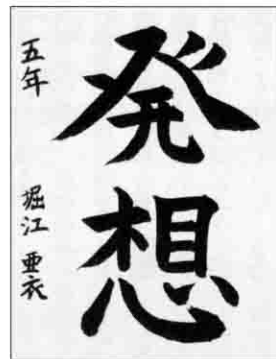 発想
五年 堀江亜衣